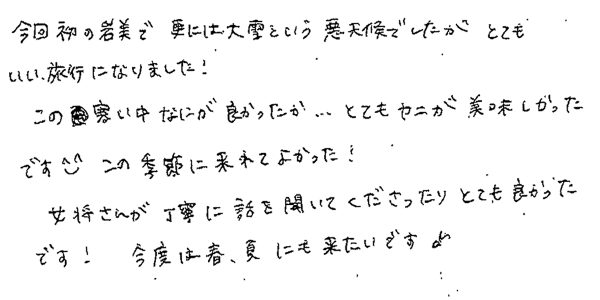 今回初の岩美で 更には大雪という悪天候でしたが とても
いい旅行になりました!
この寒い中なにが良かったか… とてもカニが美味しかった
です^^ この季節に来れてよかった!
女将さんが丁寧に話を聞いてくださったり とても良かった
です! 今度は春、夏にも来たいです